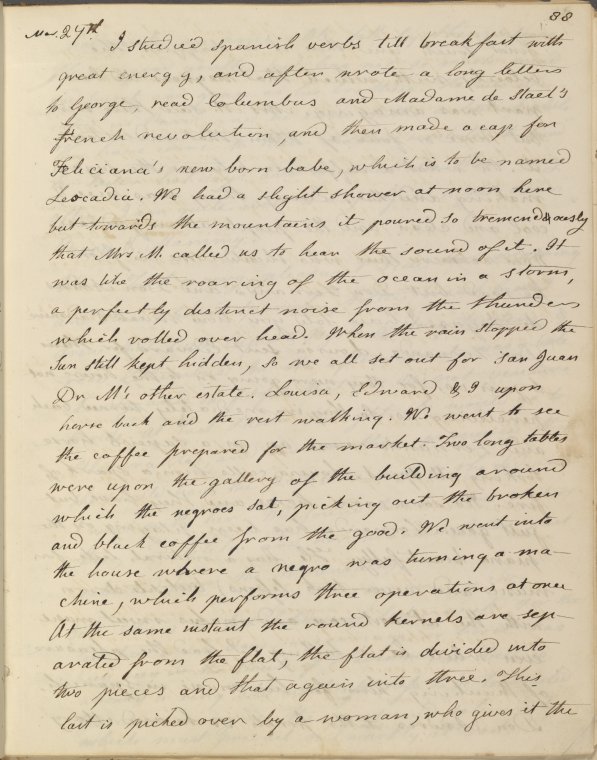 88
Mar. 27th
I studied spanish verbs till breakfast with
great energy, and after wrote a long letter
to George, read Columbus and Madame de Stael's
French revolution, and then made a cap for
Feliciana's new born babe, which is to be named
Leocadia. We had a slight shower at noon here
but towards the mountains it poured so tremendously
that Mrs M. called us to hear the sound of it. It
was like the roaring of the ocean in a storm,
a perfectly distinct noise from the thunder
which rolled over head. When the rain stopped the
Sun still kept hidden, so we all set out for San Juan
Dr M's other estate. Louisa, Edward & I upon
horse back and the rest walking. We went to see
the coffee prepared for the market. Two long tables
were upon the gallery of the building around
which the negroes sat, picking out the broken
and black coffee from the good. We went into
the house where a negro was turning a ma-
chine, which performs three operations at once
At the same instant the round kernels are sep-
arated from the flat, the flat is divided into
two pieces and that again into three. This
last is picked over by a woman, who gives it the